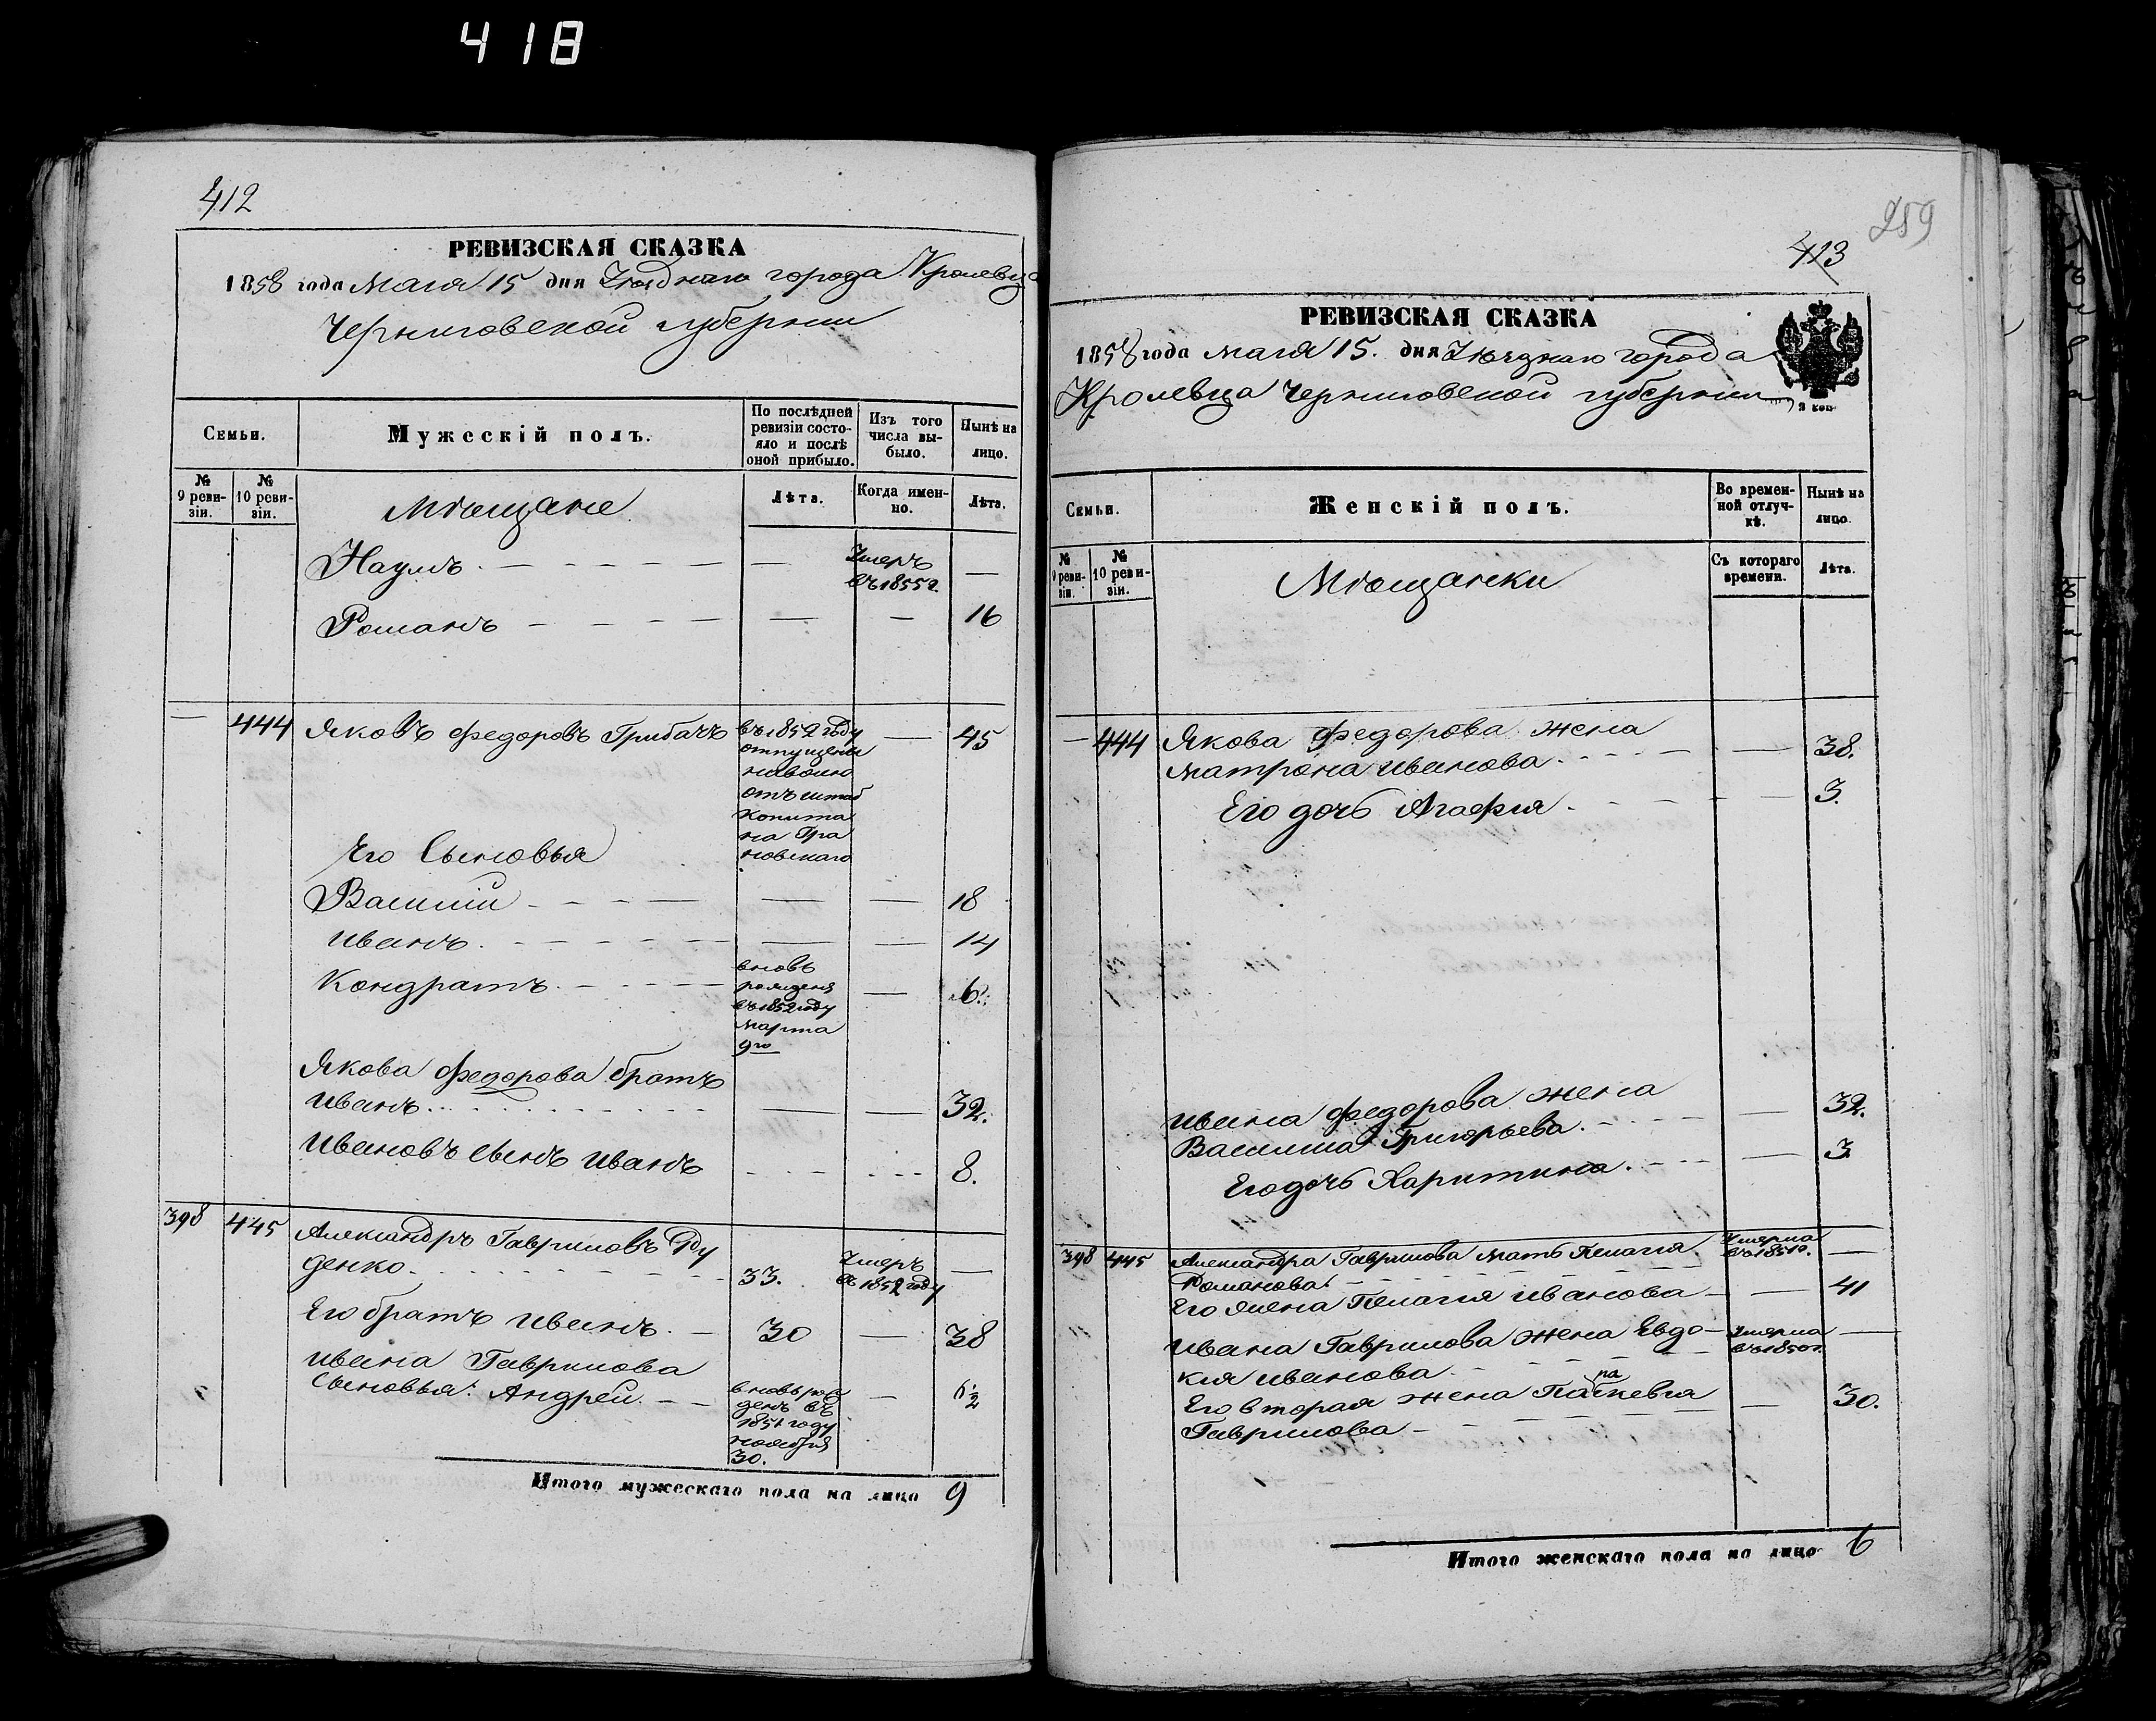 418
412
РЕВИЗСКАЯ СКАЗКА
1858 года Мая 15 дня Уѣзднаго города Кролевца
Черниговской губернии
Семьи.
Мужескій полъ.
По послѣдней ревизіи состояло и послѣ оной прибыло.
Изъ того числа выбыло.
Нынѣ на лицо.
№ 9 ревизіи.
№ 10 ревизіи.
Мѣщане
Лѣта.
Когда именно.
Лѣта.
Наумъ - — — Умеръ въ 1855 г. —
Романъ - — — — 16
— 444 Яковъ Федоровъ Грибачъ въ 1852 году — 45
отпущены
на волю
отъ штаб
Капита
на Гра
новскаго
Его Сыновья
Василій - — — — 18
Иванъ - — — — 14
Кондратъ - — вновь — 6
рожденъ
въ 1852 году
марта
9го
Якова Федорова братъ
Иванъ - — — 32.
Ивановъ сынъ Иванъ - - - - - 8.
398 445 Александръ Гавриловъ Ру
денко - 33. Умеръ въ 1852 году —
Его братъ Иванъ - 30 — 38
Ивана Гаврилова
Сыновья: Андрей - вновь рож — 6½
денъ въ
1851 году
ноября
30.
Итого мужескаго пола на лицо 9
259
413
РЕВИЗСКАЯ СКАЗКА
1858 года мая 15. дня Уѣзднаго города
Кролевца Черниговской губернии
Семьи.
Женскій полъ.
Во временной отлучкѣ.
Нынѣ на лицо.
№ 9 ревизіи.
№ 10 ревизіи.
Мѣщанки
Съ котораго времени.
Лѣта.
— 444 Якова Федорова жена
Матрона Иванова - — 38.
Его дочь Агафия - — 3.
Ивана Федорова жена
Василиса Григорьева - — 32.
Его дочь Харитина - — 3
398 445 Александра Гаврилова мать Пелагия Умерла —
Романова
Его жена Пелагия Иванова - — 41
Ивана Гаврилова жена Евдо- Умерла въ 1850 г. —
кия Иванова
Его вторая жена — 30.
Гаврилова -
Итого женскаго пола на лицо 6